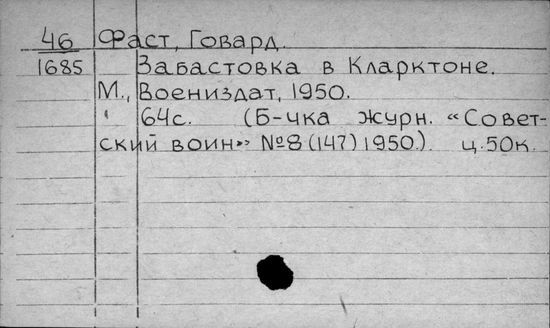 46 Фаст, Говард.
1685 Забастовка в Кларктоне.
М., Воениздат, 1950.
64с. (Б-чка журн. "Совет-
ский воин" №8(147) 1950.). ц.50к.